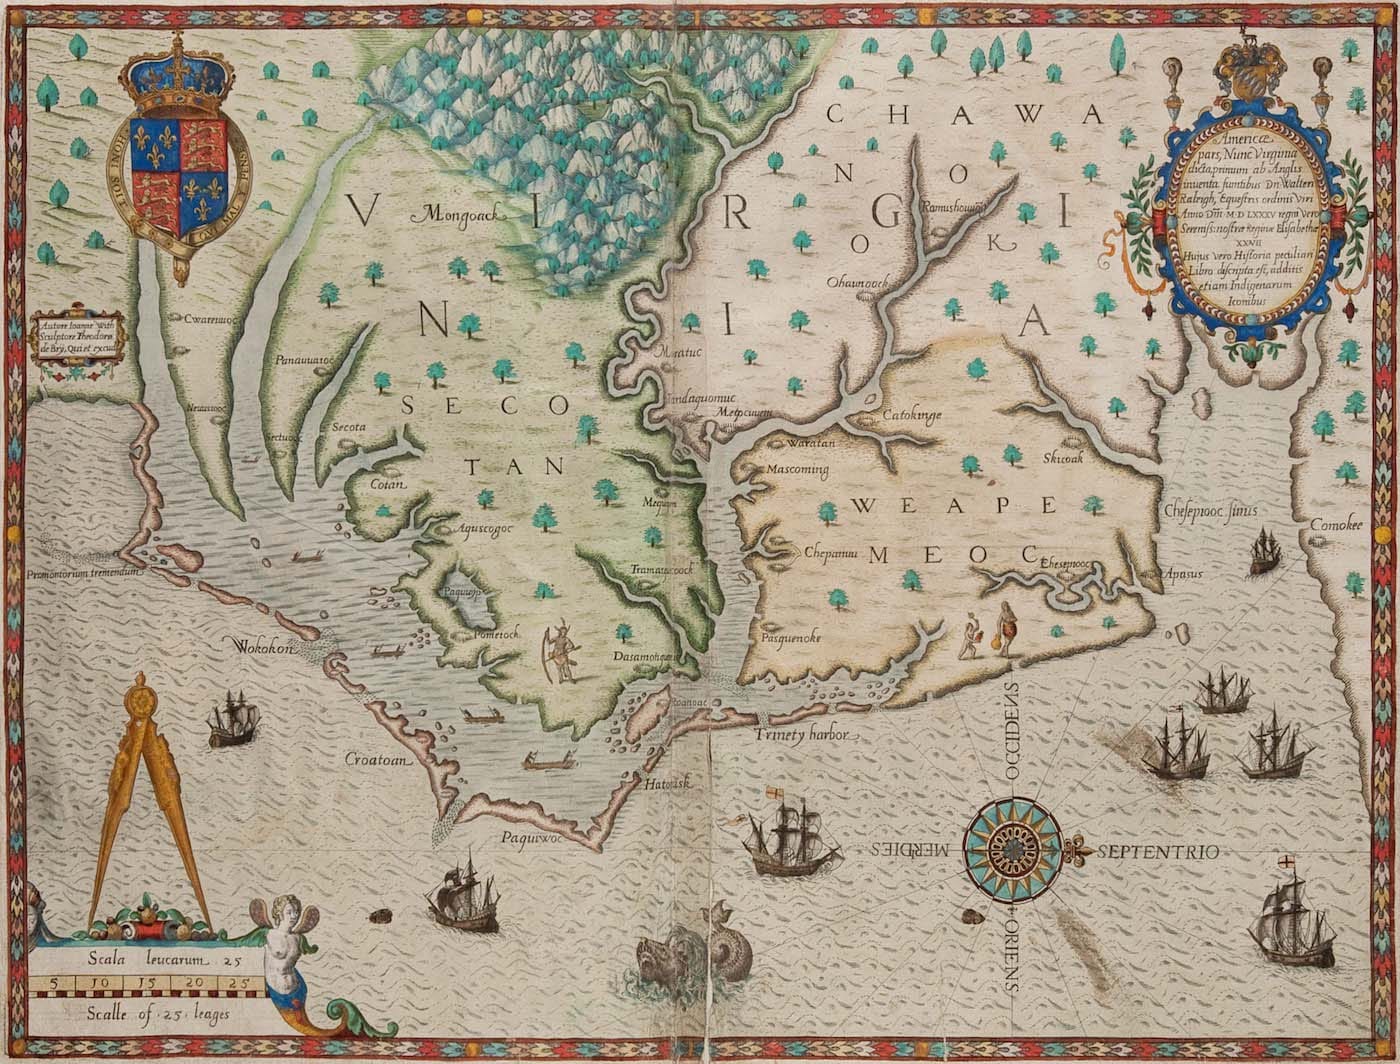 Americæ
pars, Nunc Virginia
dicta, primum ab Anglis
inuenta sumtibus Dn. Walteri
Raleigh, Equestris ordinis Viri
Anno Dñi. M.D LXXXV regni Vero
Sereniss: nostræ Reginæ Elisabethæ
XXVII
Hujus vero Historia peculiari
Libro discripta est, additis
etiam Indigenarum
Iconibus
Autore Ioanne With
Sculptore Theodoro
de Brÿ, Qui et excud
VIRGINIA
CHAWANOOK
SECOTAN
WEAPEMEOC
Mongoack
Ramushouuog
Ohaunoock
Cwarewuoc
Panauuaioc
Neuusiooc
Sectuooc
Secota
Cotan
Aquscogoc
Paquiip
Pomeiock
Moratuc
Mequom
Tramasquecoock
Dasamonquepeuc
Catokinge
Waratan
Mascoming
Chepanuu
Pasquenoke
Skicoak
Ehesepiooc
Apasus
Chesepiooc sinus
Comokee
Promontorium tremendum
Wokokon
Croatoan
Paquiwoc
Hatorask
Roanoac
Trinety harbor
OCCIDENS
MERIDIES
SEPTENTRIO
ORIENS
Scala leucarum 25
5 10 15 20 25
Scalle of .25. leages